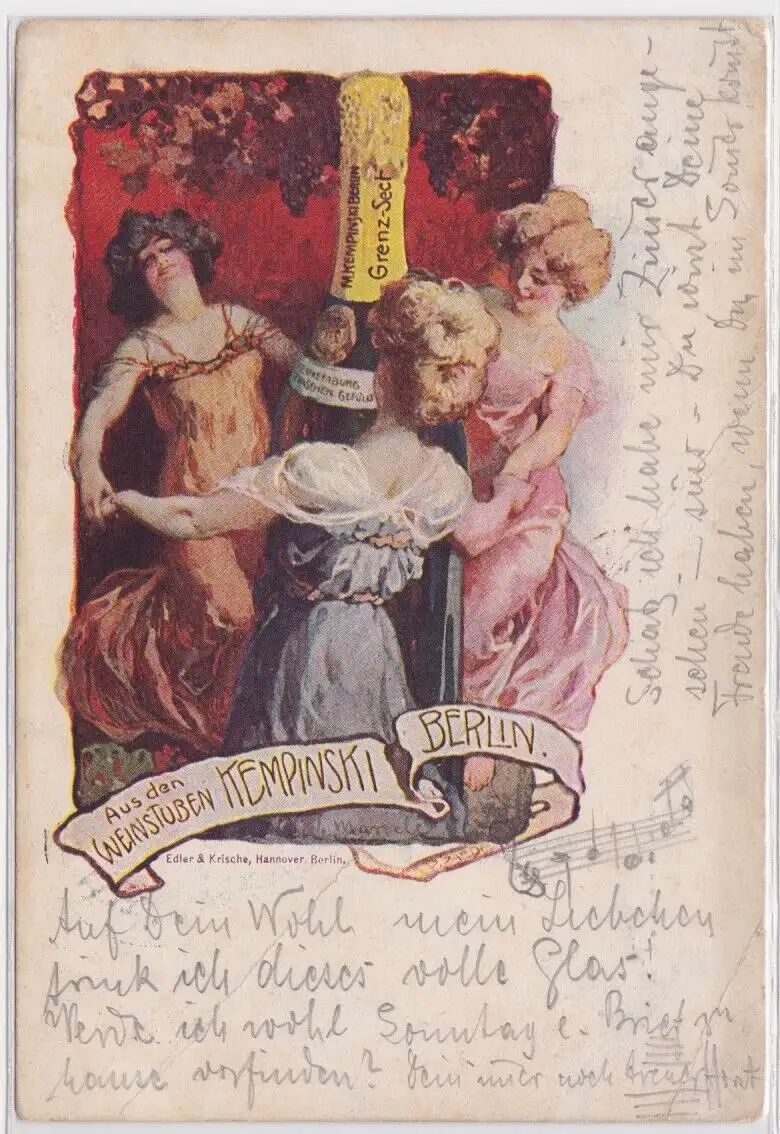 M. KEMPINSKI BERLIN
Grenz-Sect
LUXEMBURG
FLASCHEN GEFÜLLT
Aus den
WEINSTUBEN KEMPINSKI BERLIN.
Edler & Krische, Hannover. Berlin.
Auf Dein Wohl mein Liebchen
trink ich dieses volle Glas!
Werde ich wohl Sonntag e. Brief zu
hause vorfinden? Dein noch Horst
Schatz ich habe mir Zimer ange-
sehen — Du wirst Deine
Freude haben, wenn Du im komst